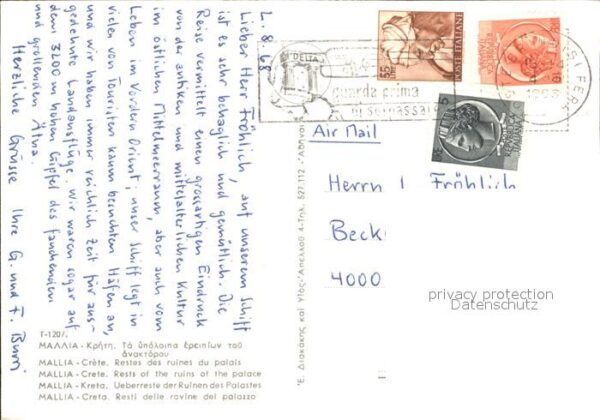 2.8.68
Lieber Herr Fröhlich, auf unserem Schiff
ist es sehr behaglich und gemütlich. Die
Reise vermittelt einen grossartigen Eindruck
von der antiken und mittelalterlichen Kultur
im östlichen Mittelmeerraum, aber auch vom
Leben im Vordern Orient; unser Schiff legt in
vielen von Touristen kaum besuchten Häfen an,
und wir haben immer reichlich Zeit für aus-
gedehnte Landausflüge. Wir waren sogar auf
dem 3200 m hohen Gipfel des fauchenden
und grollenden Ätna.
Herzliche Grüsse Ihre G. und F. Burri
T-1207.
ΜΑΛΛΙΑ - Κρήτη. Τὰ ὑπόλοιπα ἐρειπίων τοῦ
ἀνακτόρου
MALLIA - Crète. Restes des ruines du palais
MALLIA - Crete. Rests of the ruins of the palace
MALLIA - Kreta. Ueberreste der Ruinen des Palastes
MALLIA - Creta. Resti delle rovine del palazzo
Ἐ. Διακάκης καὶ Υἱός - Ἀπελλοῦ 4 - Τηλ. 527.112 - Ἀθῆναι
DELTA
guarda prima
di sorpassare
55
POSTE ITALIANE
1968
Air Mail
Herrn Fröhlich
Beck
4000
privacy protection
Datenschutz